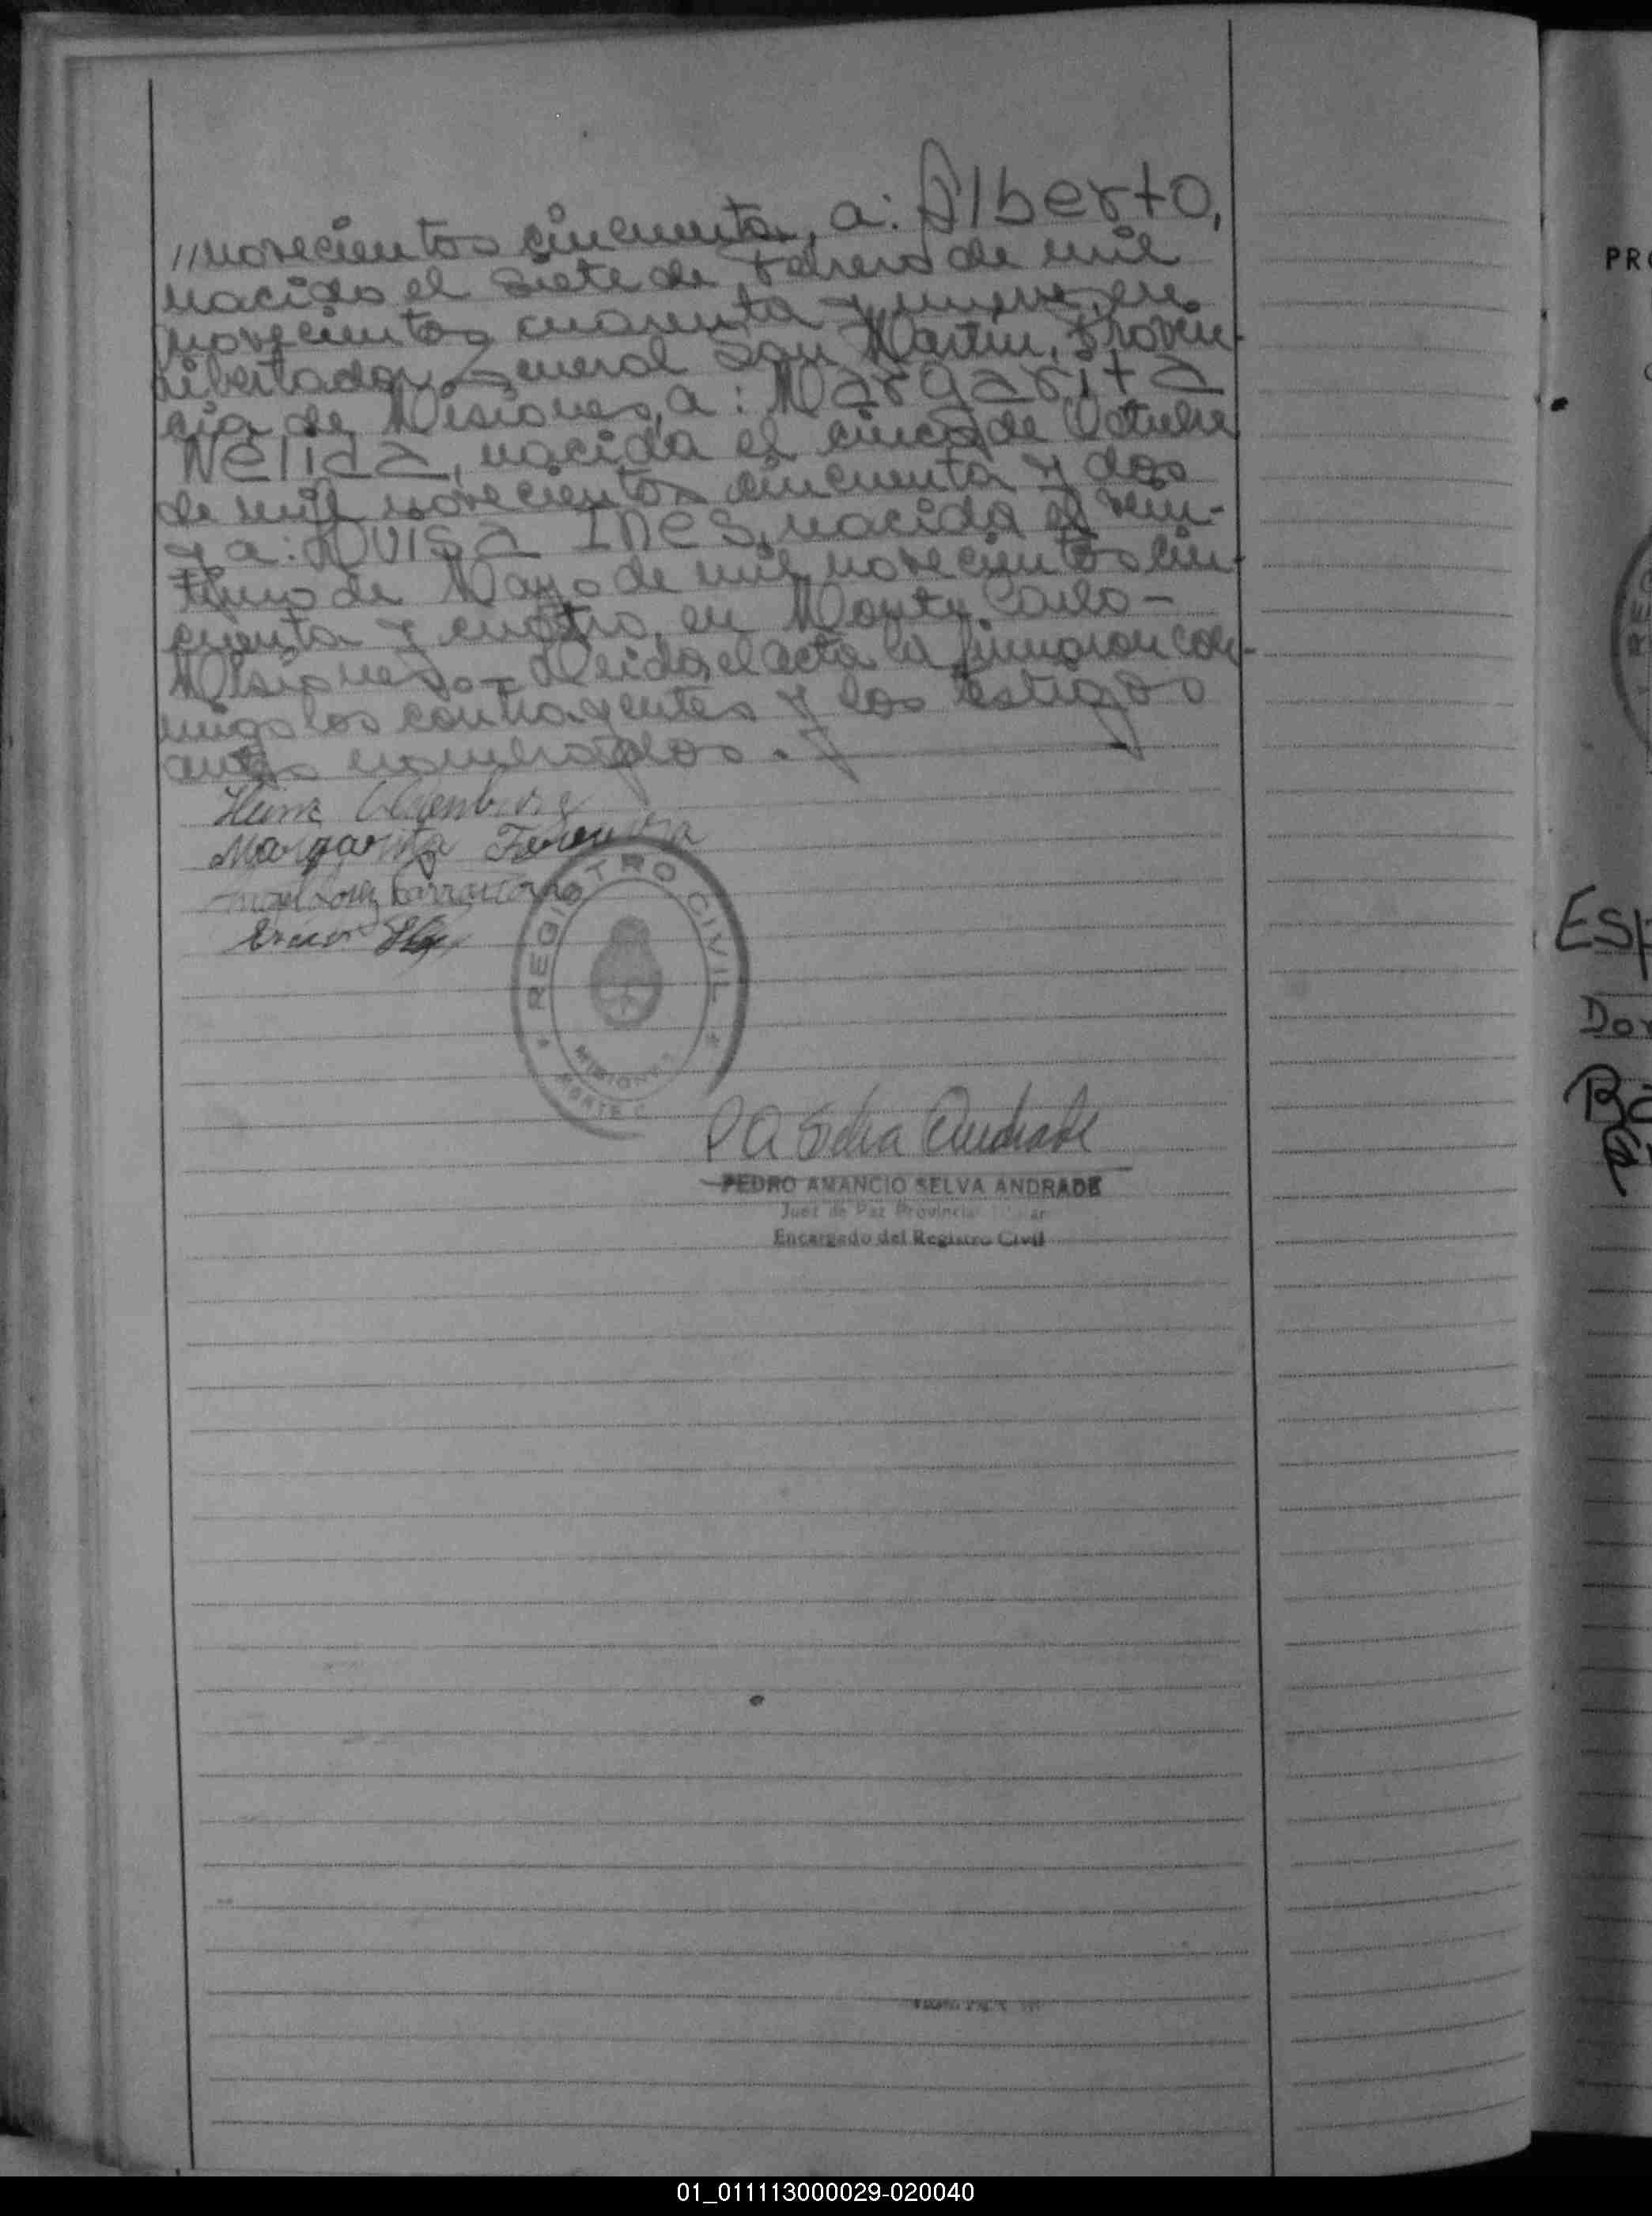 //novecientos cincuenta, a: Alberto,
nacido el siete de Febrero de mil
novecientos cuarenta y nueve, en
Libertador General San Martin, Provin-
cia de Misiones, a: Margarita
Nelida, nacida el cinco de Octubre
de mil novecientos cincuenta y dos
y a: Luisa Ines, nacida el vein-
tiuno de Mayo de mil novecientos cin-
cuenta y cuatro, en Monte Carlo-
Misiones.- Leida el acta la firmaron con-
migo los contrayentes y los testigos
antes nombrados.
Heinz
Margarita Ferreyra
REGISTRO CIVIL
MISIONES
MONTE C
P A Selva Andrade
PEDRO AMANCIO SELVA ANDRADE
Juez de Paz Provincial
Encargado del Registro Civil
PR
ESP
Do
01_011113000029-020040